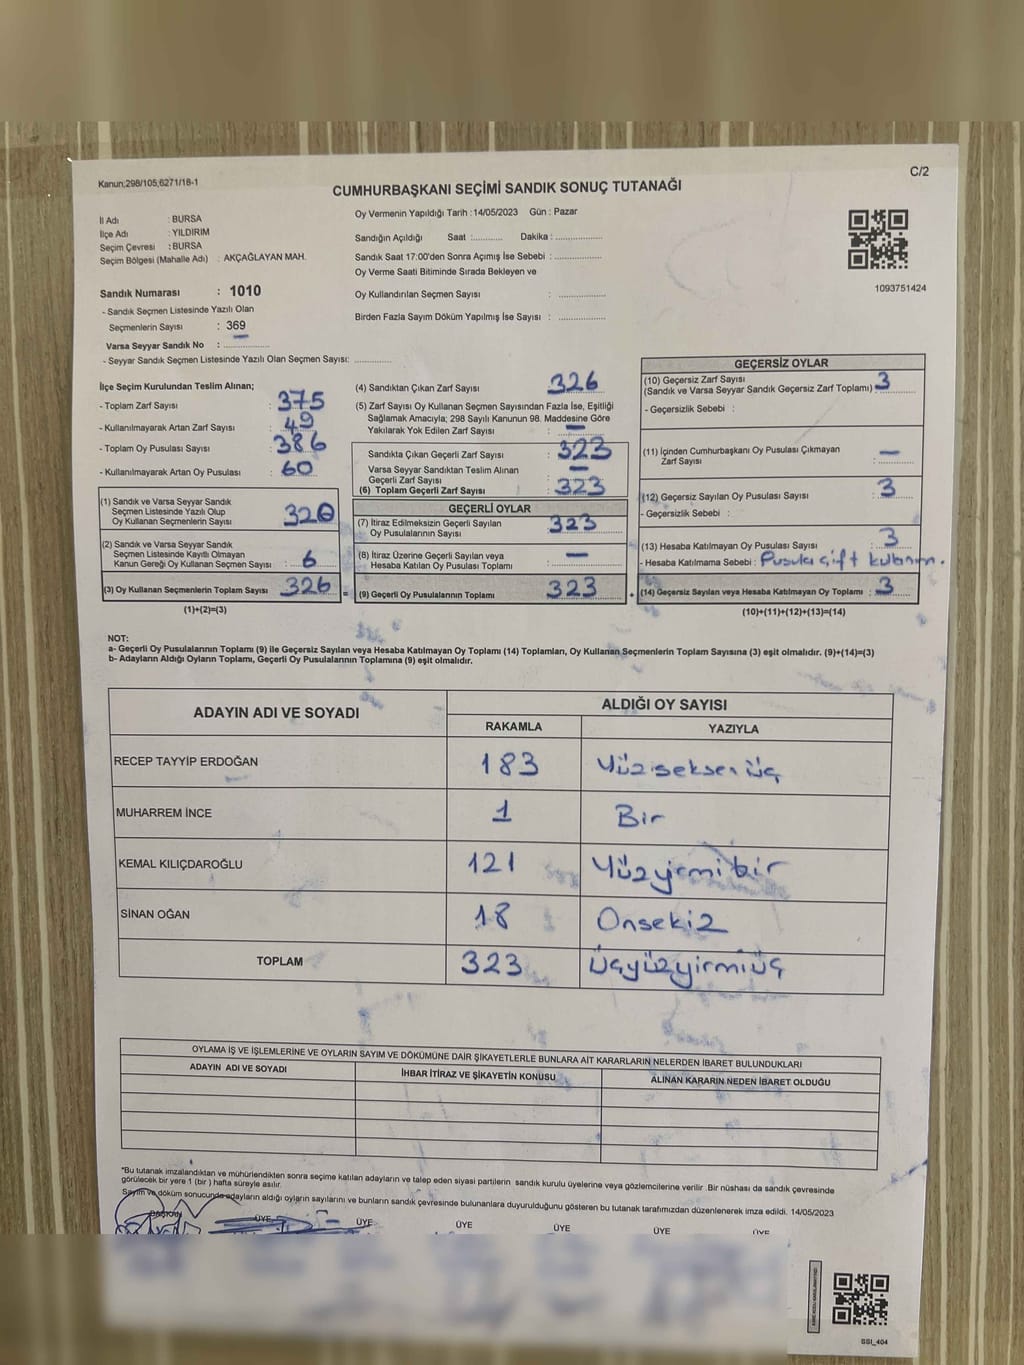 Kanun;298/105;6271/18-1
C/2
CUMHURBAŞKANI SEÇİMİ SANDIK SONUÇ TUTANAĞI
İl Adı : BURSA
İlçe Adı : YILDIRIM
Seçim Çevresi : BURSA
Seçim Bölgesi (Mahalle Adı) : AKÇAĞLAYAN MAH.
Sandık Numarası : 1010
- Sandık Seçmen Listesinde Yazılı Olan
Seçmenlerin Sayısı : 369
Varsa Seyyar Sandık No : ............
- Seyyar Sandık Seçmen Listesinde Yazılı Olan Seçmen Sayısı: ............
Oy Vermenin Yapıldığı Tarih :14/05/2023 Gün : Pazar
Sandığın Açıldığı Saat :........... Dakika : ................
Sandık Saat 17:00'den Sonra Açımış İse Sebebi : ................
Oy Verme Saati Bitiminde Sırada Bekleyen ve
Oy Kullandırılan Seçmen Sayısı : ................
Birden Fazla Sayım Döküm Yapılmış İse Sayısı : ................
1093751424
İlçe Seçim Kurulundan Teslim Alınan;
- Toplam Zarf Sayısı : 375
- Kullanılmayarak Artan Zarf Sayısı : 49
- Toplam Oy Pusulası Sayısı : 386
- Kullanılmayarak Artan Oy Pusulası : 60
(1) Sandık ve Varsa Seyyar Sandık
Seçmen Listesinde Yazılı Olup
Oy Kullanan Seçmenlerin Sayısı : 320
(2) Sandık ve Varsa Seyyar Sandık
Seçmen Listesinde Kayıtlı Olmayan
Kanun Gereği Oy Kullanan Seçmen Sayısı : 6
(3) Oy Kullanan Seçmenlerin Toplam Sayısı : 326
(1)+(2)=(3)
(4) Sandıktan Çıkan Zarf Sayısı : 326
(5) Zarf Sayısı Oy Kullanan Seçmen Sayısından Fazla İse, Eşitliği
Sağlamak Amacıyla; 298 Sayılı Kanunun 98. Maddesine Göre
Yakılarak Yok Edilen Zarf Sayısı : —
Sandıkta Çıkan Geçerli Zarf Sayısı : 323
Varsa Seyyar Sandıktan Teslim Alınan
Geçerli Zarf Sayısı : —
(6) Toplam Geçerli Zarf Sayısı : 323
GEÇERLİ OYLAR
(7) İtiraz Edilmeksizin Geçerli Sayılan
Oy Pusulalarının Sayısı : 323
(8) İtiraz Üzerine Geçerli Sayılan veya
Hesaba Katılan Oy Pusulası Toplamı : —
= (9) Geçerli Oy Pusulalarının Toplamı : 323
GEÇERSİZ OYLAR
(10) Geçersiz Zarf Sayısı
(Sandık ve Varsa Seyyar Sandık Geçersiz Zarf Toplamı) : 3
- Geçersizlik Sebebi :
(11) İçinden Cumhurbaşkanı Oy Pusulası Çıkmayan
Zarf Sayısı : —
(12) Geçersiz Sayılan Oy Pusulası Sayısı : 3
- Geçersizlik Sebebi :
(13) Hesaba Katılmayan Oy Pusulası Sayısı : 3
- Hesaba Katılmama Sebebi : Pusula çift kullanım.
+ (14) Geçersiz Sayılan veya Hesaba Katılmayan Oy Toplamı : 3
(10)+(11)+(12)+(13)=(14)
NOT:
a- Geçerli Oy Pusulalarının Toplamı (9) ile Geçersiz Sayılan veya Hesaba Katılmayan Oy Toplamı (14) Toplamları, Oy Kullanan Seçmenlerin Toplam Sayısına (3) eşit olmalıdır. (9)+(14)=(3)
b- Adayların Aldığı Oyların Toplamı, Geçerli Oy Pusulalarının Toplamına (9) eşit olmalıdır.
ADAYIN ADI VE SOYADI
ALDIĞI OY SAYISI
RAKAMLA YAZIYLA
RECEP TAYYİP ERDOĞAN 183 Yüzseksenüç
MUHARREM İNCE 1 Bir
KEMAL KILIÇDAROĞLU 121 Yüzyirmibir
SİNAN OĞAN 18 Onsekiz
TOPLAM 323 Üçyüzyirmiüç
OYLAMA İŞ VE İŞLEMLERİNE VE OYLARIN SAYIM VE DÖKÜMÜNE DAİR ŞİKAYETLERLE BUNLARA AİT KARARLARIN NELERDEN İBARET BULUNDUKLARI
ADAYIN ADI VE SOYADI İHBAR İTİRAZ VE ŞİKAYETİN KONUSU ALINAN KARARIN NEDEN İBARET OLDUĞU
*Bu tutanak imzalandıktan ve mühürlendikten sonra seçime katılan adayların ve talep eden siyasi partilerin sandık kurulu üyelerine veya gözlemcilerine verilir .Bir nüshası da sandık çevresinde
görülecek bir yere 1 (bir ) hafta süreyle asılır.
Sayım ve döküm sonucunda adayların aldığı oyların sayılarını ve bunların sandık çevresinde bulunanlara duyurulduğunu gösteren bu tutanak tarafımızdan düzenlenerek imza edildi. 14/05/2023
BAŞKAN ÜYE ÜYE ÜYE ÜYE ÜYE ÜYE
SSI_404